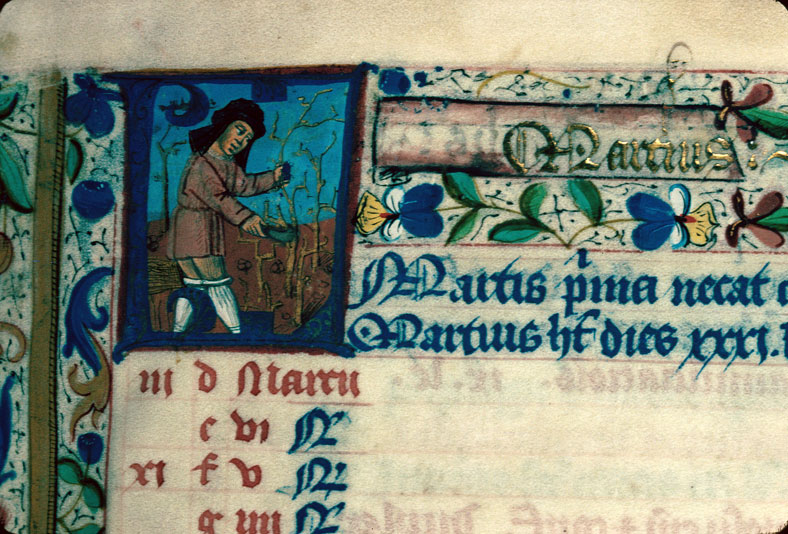 Martius.
Martis prima necat
Martius ht dies xxxi.
iii d Martii
e vi N
xi f v N
g iiii N